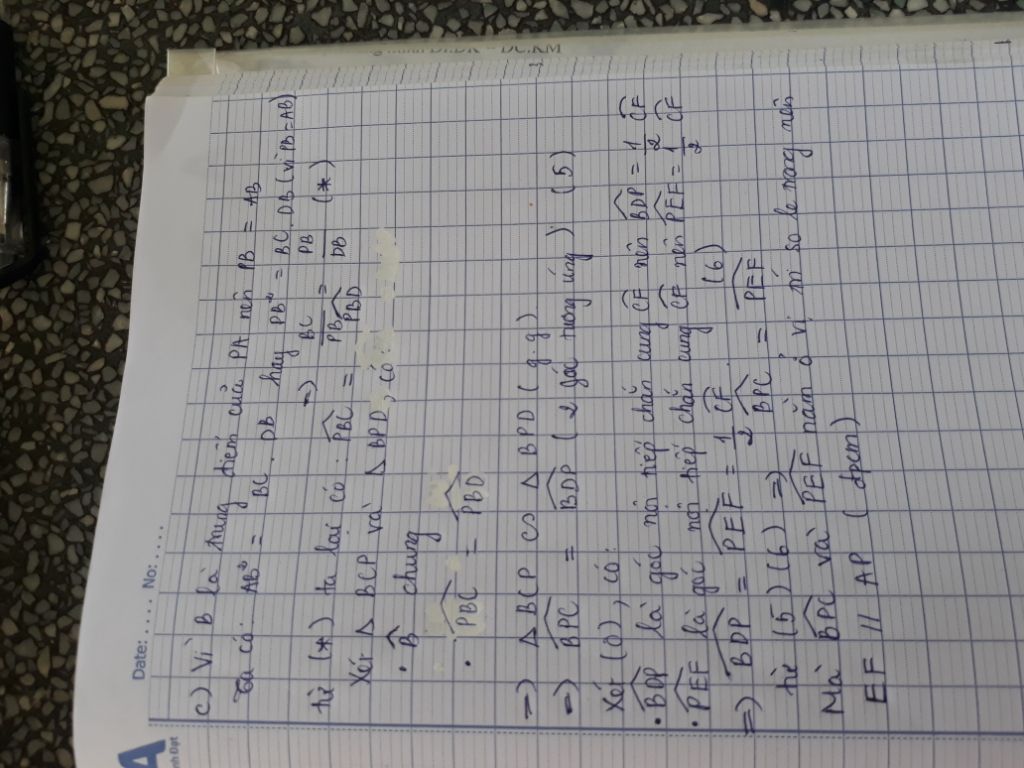 6 minh DI.DK = DC.KM
Date: ..... No: .....
A
nh Đạt
c) Vì B là trung điểm của PA nên PB = AB
Ta có: AB² = BC . DB hay PB² = BC . DB (vì PB = AB)
=) BC/PB = PB/DB (*)
từ (*) ta lại có: PBC = PBD
Xét Δ BCP và Δ BPD, có:
• B̂ chung
• PBC = PBD
=) Δ BCP ∽ Δ BPD (g.g)
=) BPC = BDP (2 góc tương ứng) (5)
Xét (O), có:
• BDP là góc nội tiếp chắn cung CF nên BDP = 1/2 CF
• PEF là góc nội tiếp chắn cung CF nên PEF = 1/2 CF
=) BDP = PEF = 1/2 CF. (6)
từ (5) (6) =) BPC = PEF
Mà BPC và PEF nằm ở vị trí so le trong nên
EF // AP (đpcm)